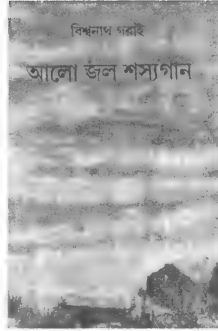 বিশ্বনাথ গরাই
আলো জল শস্যগান